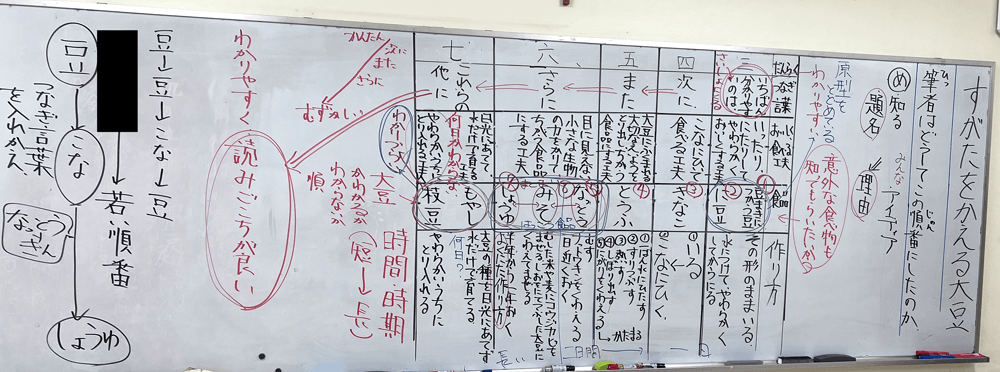 すがたをかえる大豆
筆者はどうしてこの順番にしたのか。
ひっ
じゅん
め 知る
みんな
アイディア
題名
理由
原型をとどめている
わかりやすい
意外な食物も
知ってもらいたいから
だんらく
つなぎ言葉
おいしく食べる工夫
食品
作り方
三
いちばん
分かりやすい
のは、
さいしょにくる
いったり、
にたりして、
やわらかく
おいしくする工夫
①
豆まきに
つかう豆
②
に豆
その形のままいる。
水につけて、やわらかく
してからにる
四
次に、
こなにひいて
食べる工夫
③
きなこ
①いる
②こなにひく
五
また、
大豆にふくまれる
大切なえいようを
とり出して、ちがう
食品にする工夫
④
とうふ
①一ばん水にひたす
②すりつぶす
③熱する
④しぼり出す
⑤にがりをくわえる
かたまる
六
さらに、
目に見えない
小さな生物
の力をかりて
ちがう食品
にする工夫
食品
⑤
なっとう
⑥
みそ
しょうゆ
むす
ナットウキンをくわえる
一日近くおく
七
これらの
他に
日光にあてず
水だけで育てる
工夫
何日かわからない
とり入れる時期
もやし
枝豆
大豆の種を日光にあてず
水だけで育てる
やわらかいうちに
とり入れる
何日?
長い
二日間
一日
わかって
かんたん
次に
また
さらに
むずかしい
大豆
わかるか
わからないか
順
時間・時期
(短→長)
読みごこちが良い
わかりやすく
豆→豆→こな→豆
若い順番
豆
こな
なっとう
しょうゆ
つなぎ言葉
を入れかえ